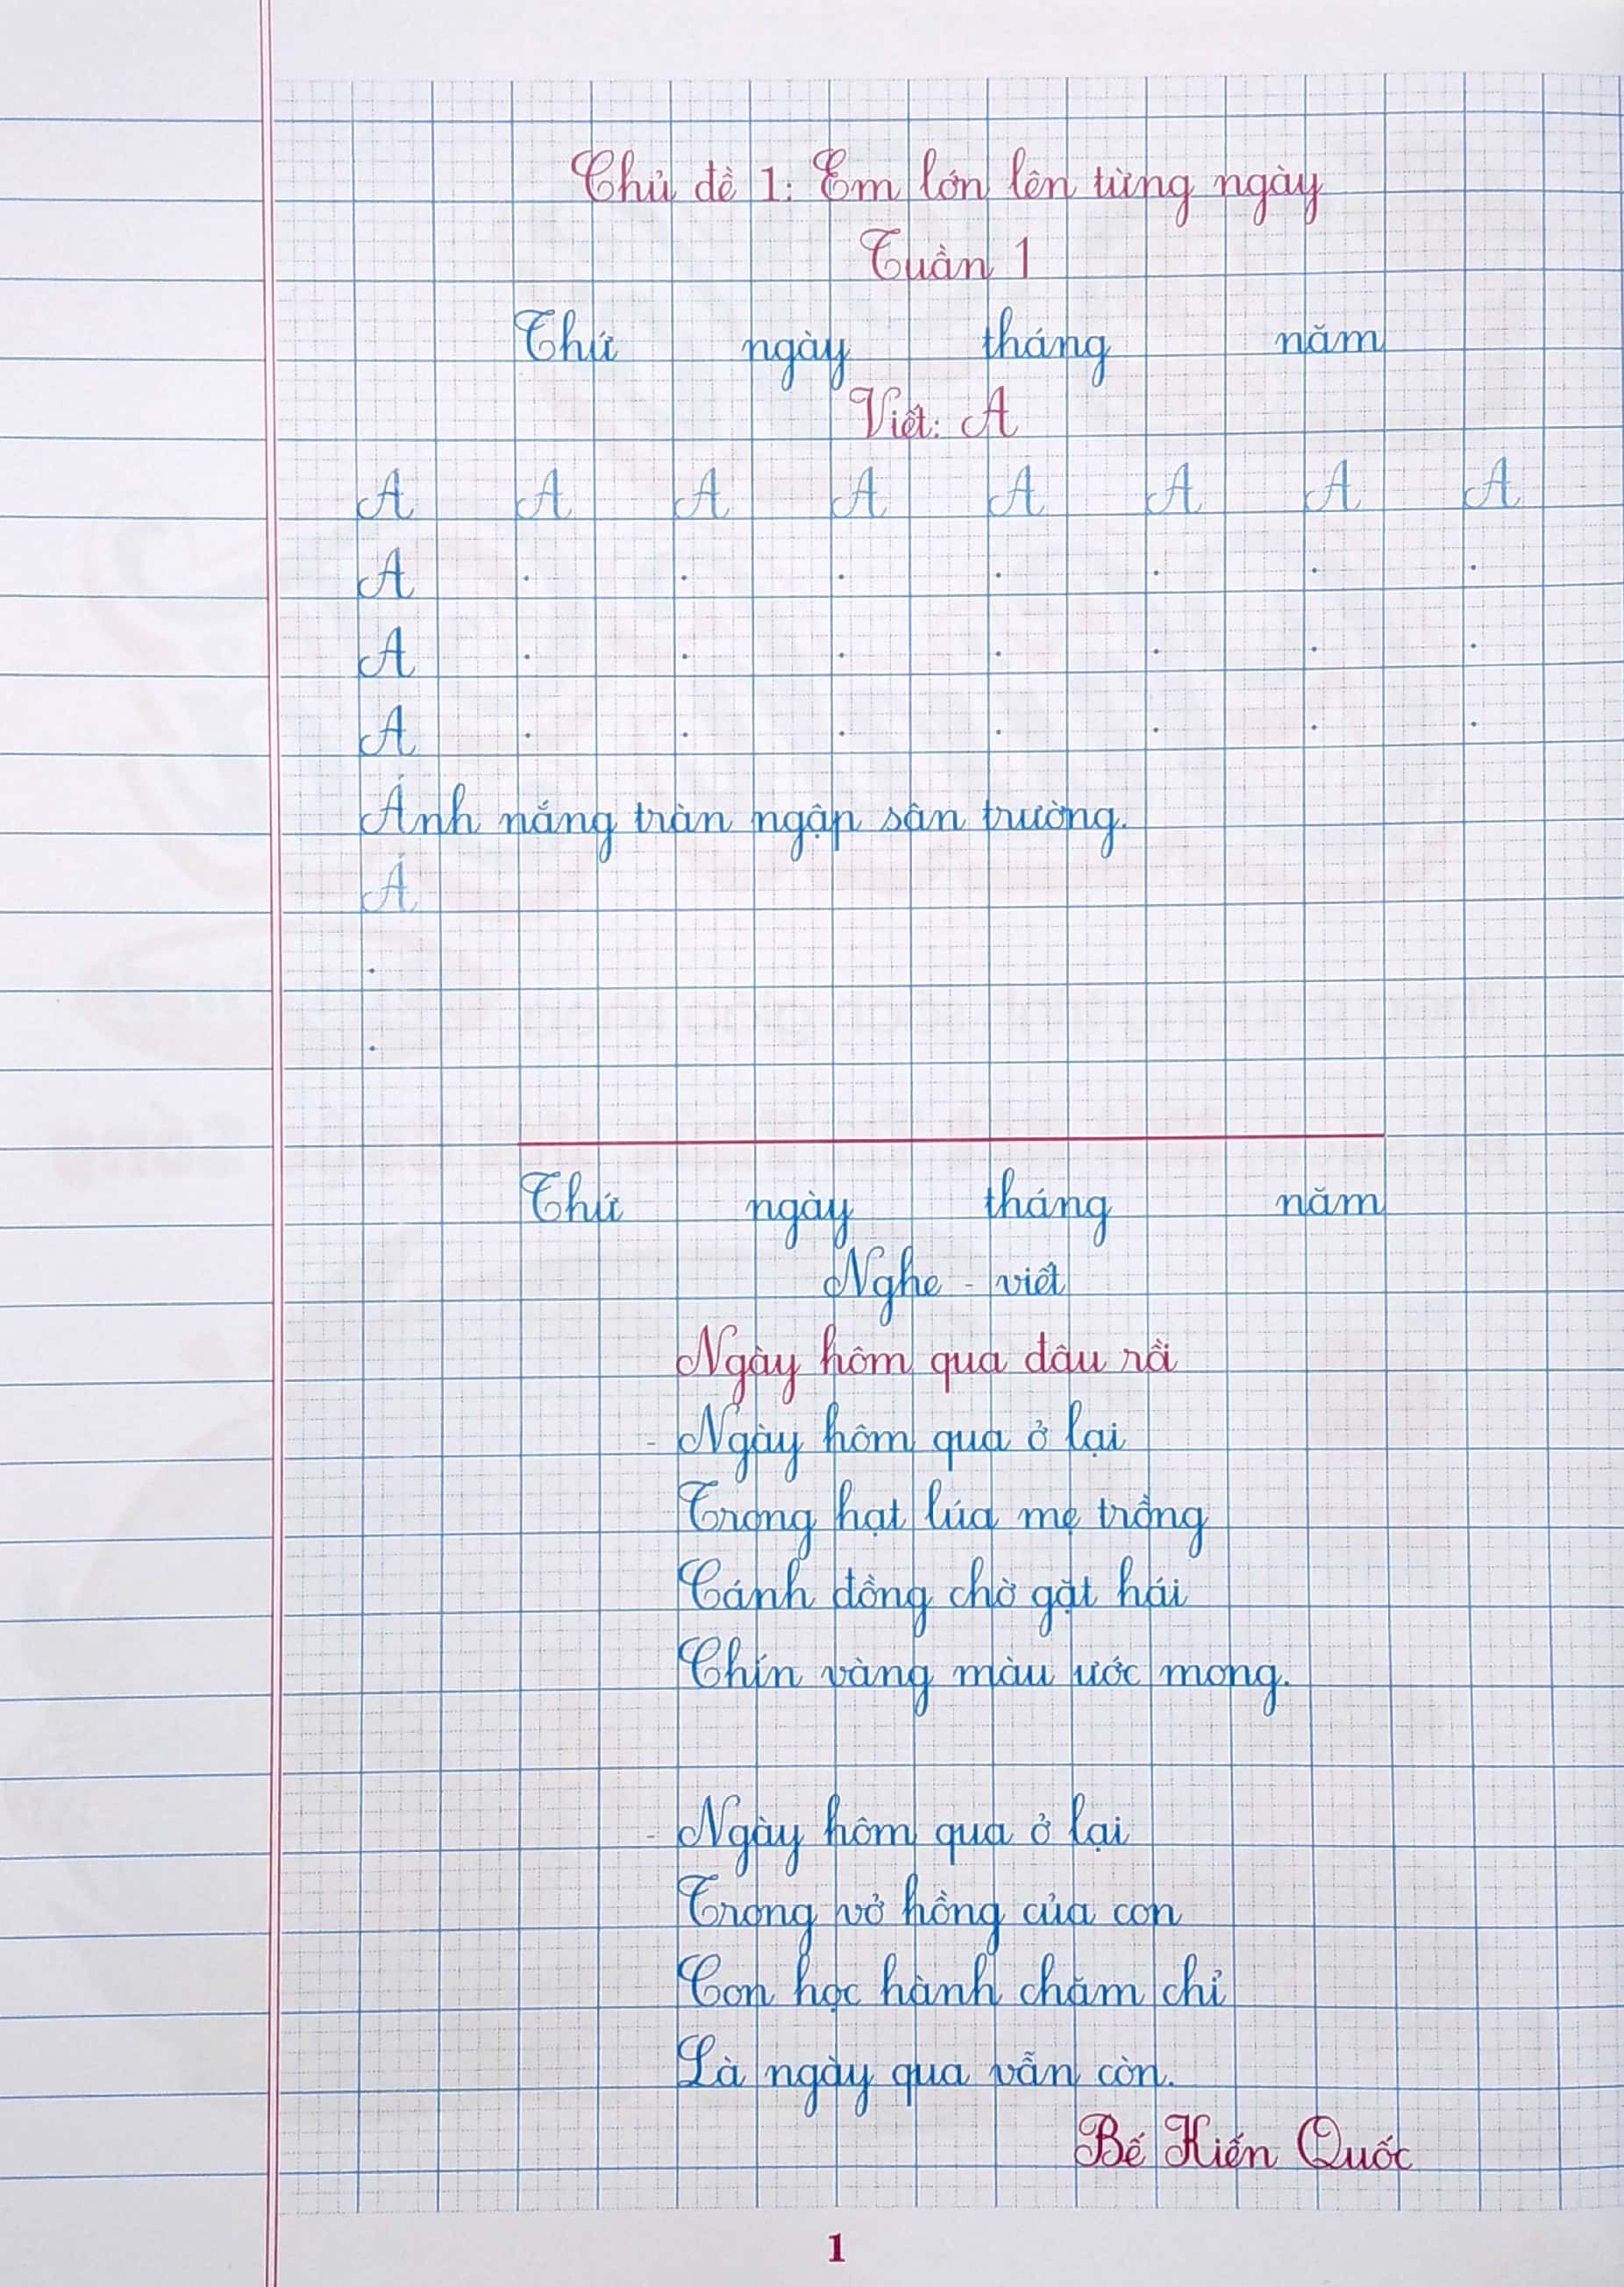 Chủ đề 1: Em lớn lên từng ngày
Tuần 1
Thứ ngày tháng năm
Viết: A
A A A A A A A A
A . . . . . . .
A . . . . . . .
A . . . . . . .
Ánh nắng tràn ngập sân trường.
Á
.
.
Thứ ngày tháng năm
Nghe - viết
Ngày hôm qua đâu rồi
- Ngày hôm qua ở lại
Trong hạt lúa mẹ trồng
Cánh đồng chờ gặt hái
Chín vàng màu ước mong.
- Ngày hôm qua ở lại
Trong vở hồng của con
Con học hành chăm chỉ
Là ngày qua vẫn còn.
Bế Kiến Quốc
1